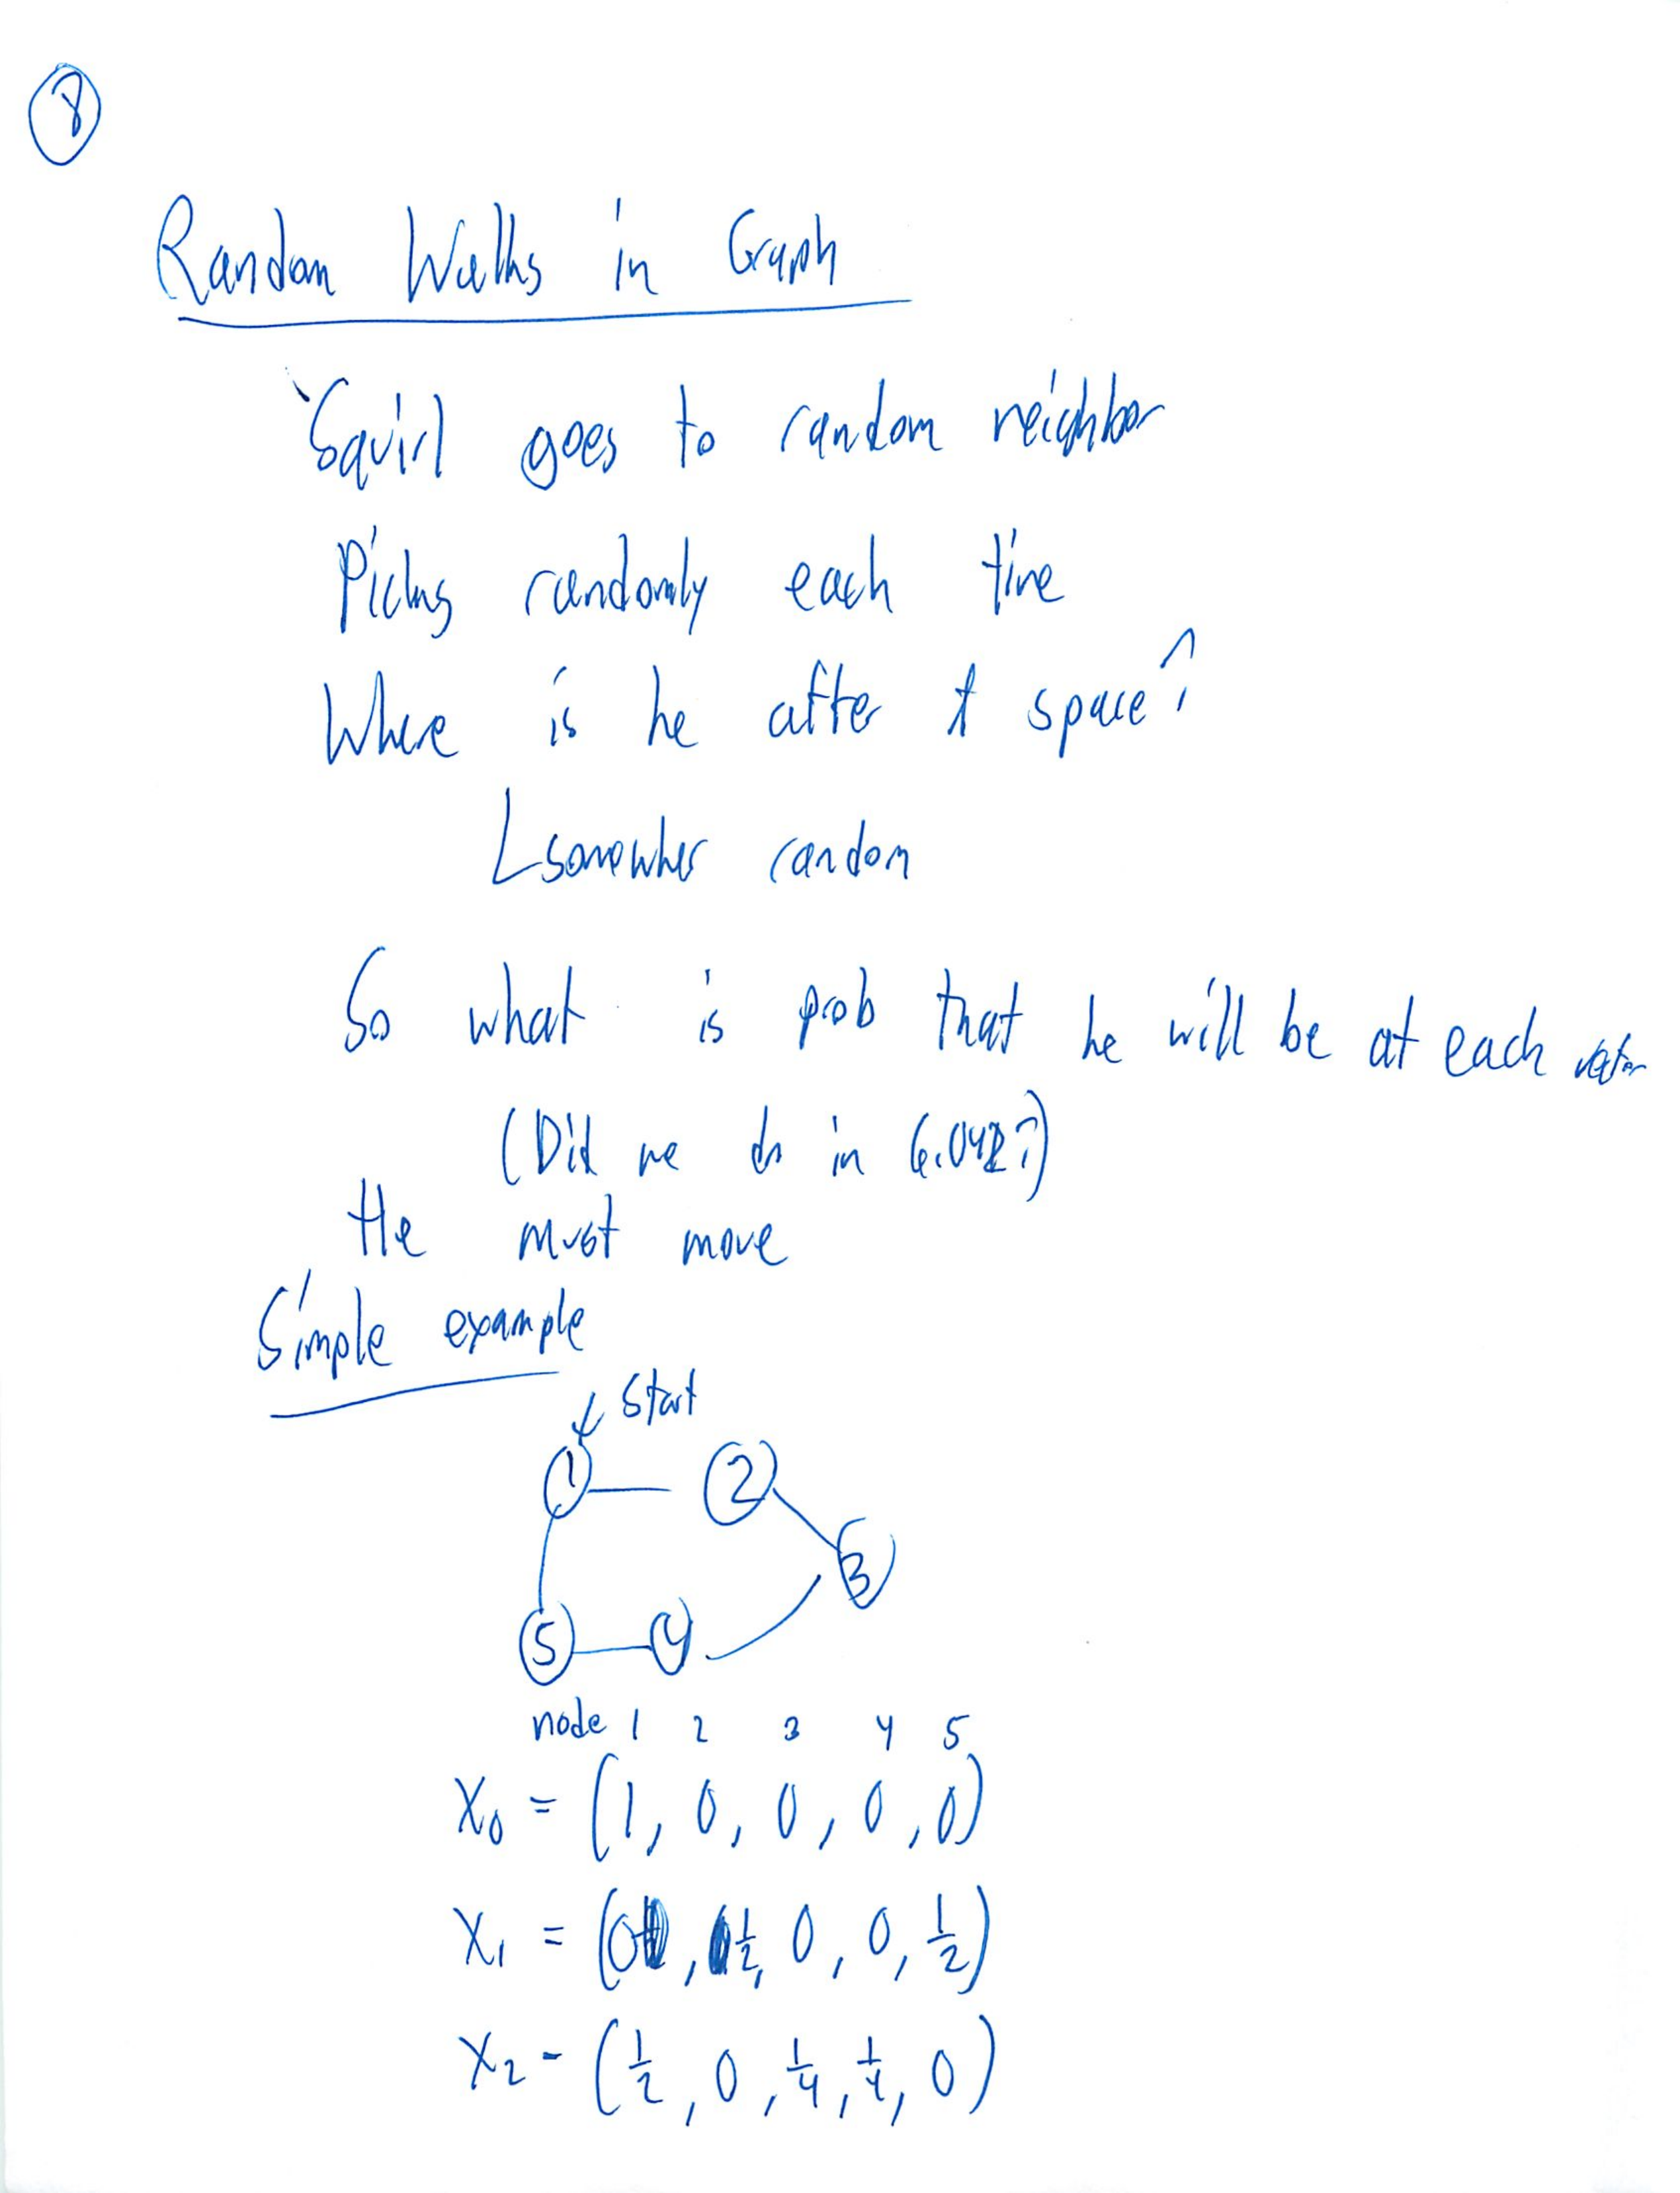 8
Random Walks in Graph
Squirl goes to random neighbor
Picks randomly each time
Where is he after t space?
somewher random
So what is prob that he will be at each
(Did we do in 6.042?)
He must move
Simple example
Start
1 2
3
5 4
node 1 2 3 4 5
X0 = (1, 0, 0, 0, 0)
X1 = (0, 1/2, 0, 0, 1/2)
X2 = (1/2, 0, 1/4, 1/4, 0)